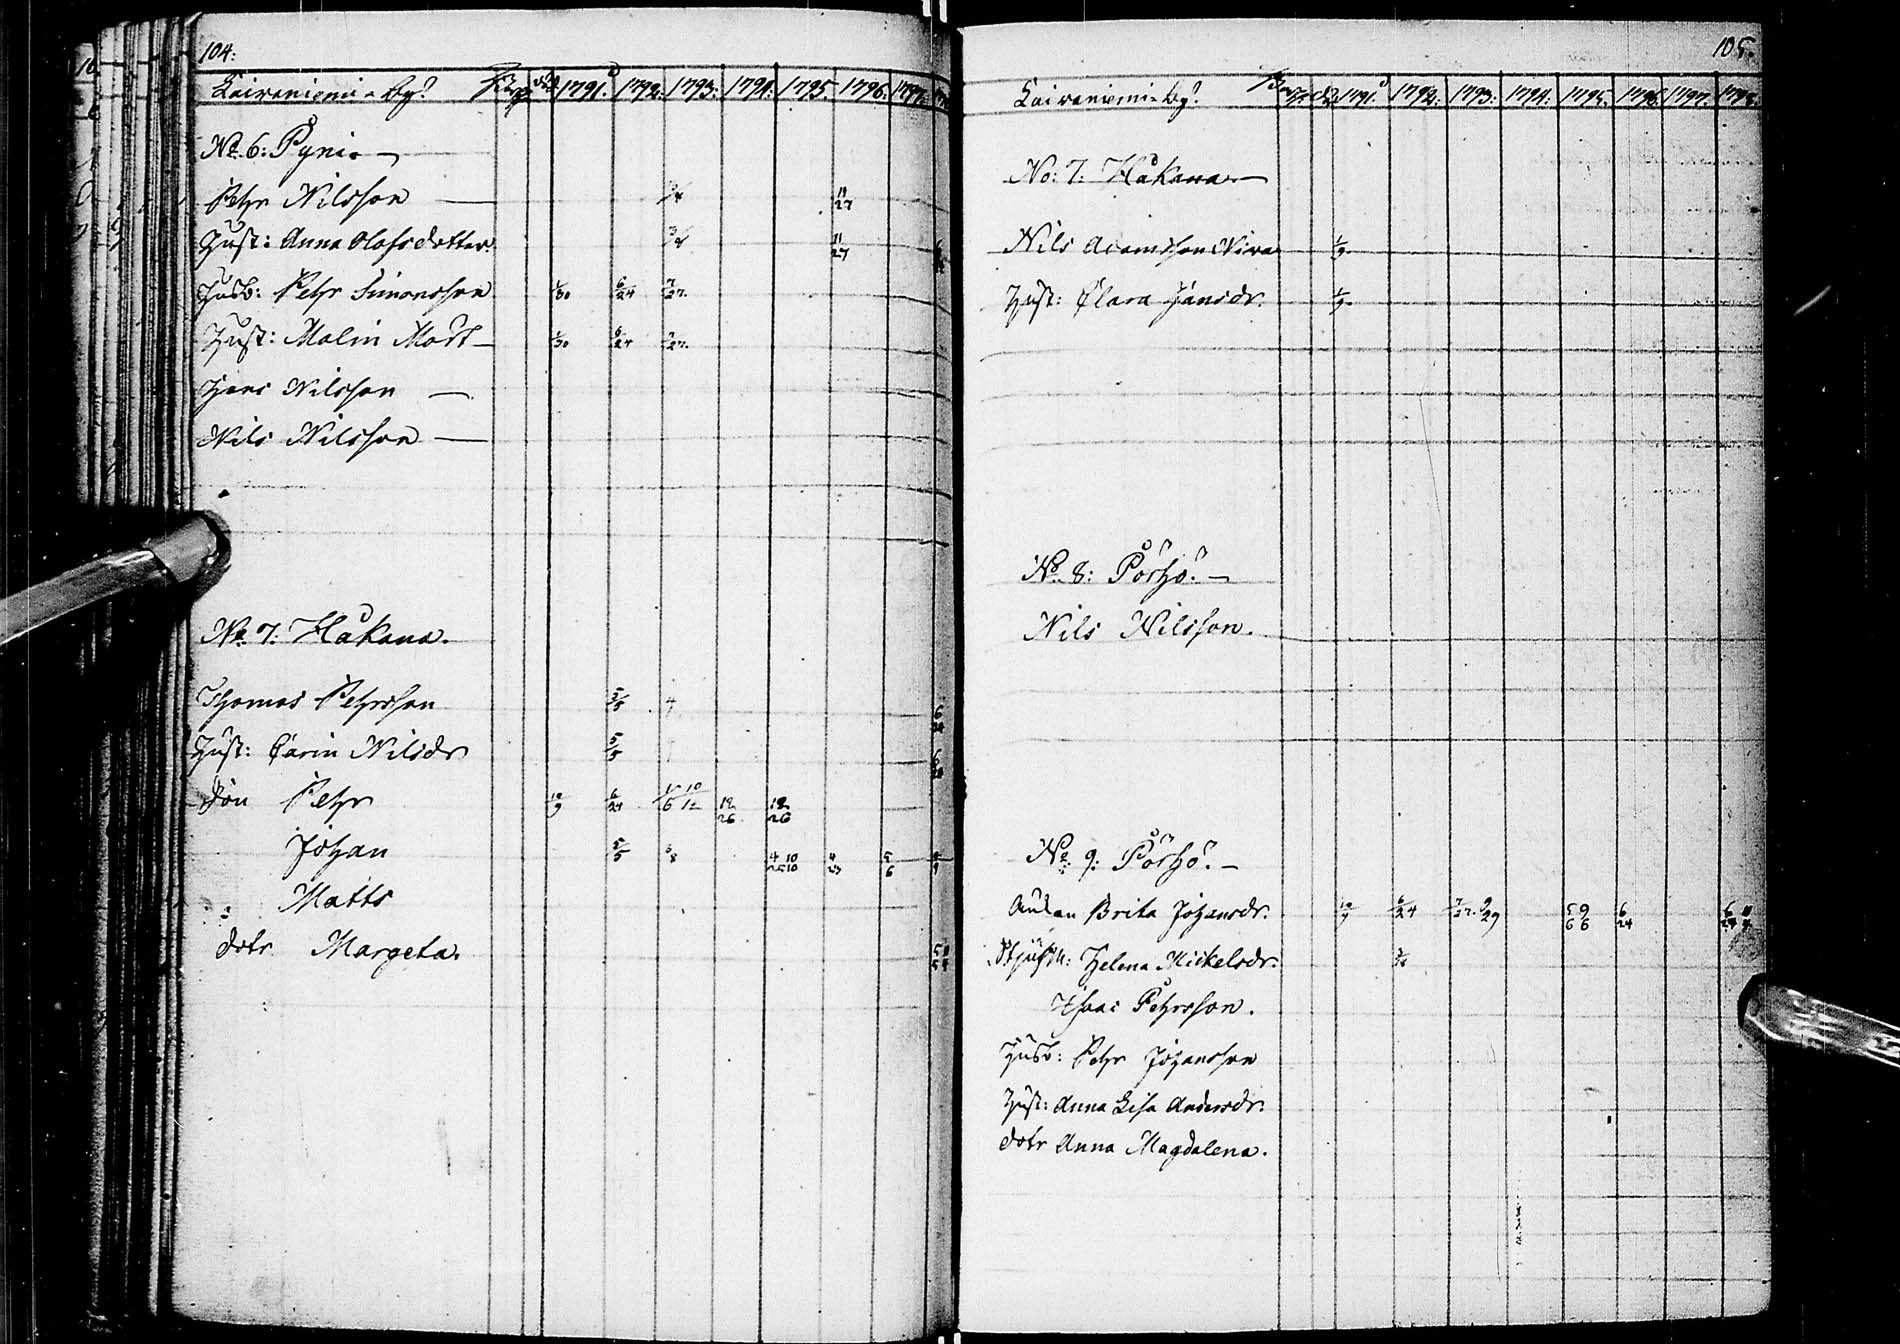 104:
Kairaniemi-by. 1791. 1792. 1793. 1794. 1795. 1796. 1797.
No 6: Pyni.
Petr Nilsson 11/27
Hust: Anna Olofsdotter 11/27
Husb: Petr Simonsson 1/30 6/24 7/27.
Hust: Malin Mart 1/30 6/24 7/27.
Hans Nilsson
Nils Nilsson
No 7: Håkana.
Thomas Petrsson 5/5
Hust: Carin Nilsdr 5/5
Son Petr 10/9 6/24 12/26 12/26
Johan 5/5 4/25 10/10 5/6
Matts
dotr Margeta.
105.
Kairaniemi-by. 1791. 1792. 1793. 1794. 1795. 1796. 1797. 1798.
No: 7. Håkana.
Nils Adamsson Wira 1/9.
Hust: Clara Hansdr. 1/9.
No 8: Pörhö.
Nils Nilsson.
No 9: Pörhö.
Enkan Brita Johansdr. 10/9 6/24 7/27. 9/29 5/6 9/6 6/24
Helena Mickelsdr.
Isaac Petrsson.
Husb: Petr Johansson
Hust: Anna Lisa Andersdr.
dotr Anna Magdalena.